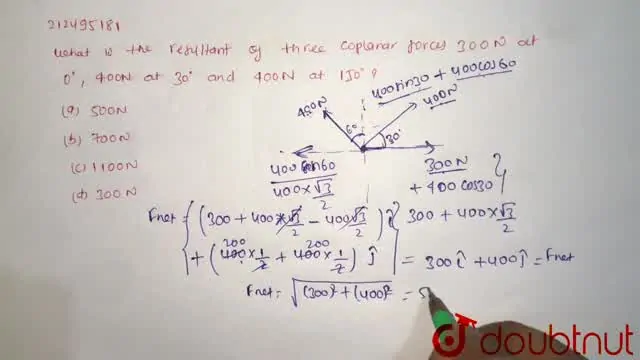 212495181
What is the resultant of three coplanar forces 300N at
0°, 400N at 30° and 400N at 150°?
(a) 500N
(b) 700N
(c) 1100N
(d) 300N
400sin30 + 400cos60
400N
400N
60°
30°
400 sin60
400×√3/2
300N
+ 400 cos30
300 + 400×√3/2
Fnet = {(300 + 400×√3/2 − 400√3/2) î
+ (400×1/2 + 400×1/2) ĵ
200 200
= 300î + 400ĵ = Fnet
Fnet = √(300)² + (400)² = 5
doubtnut